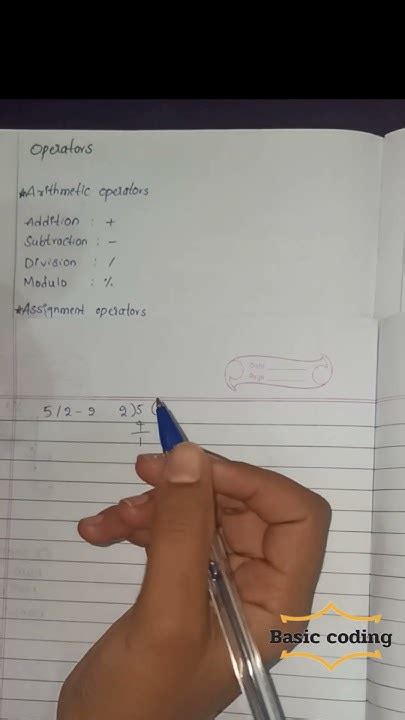 Operators
*Arithmetic operators
Addition : +
Subtraction : -
Division : /
Modulo : %
*Assignment operators
Date
Page
5/2-2 2)5(
4
1
Basic coding